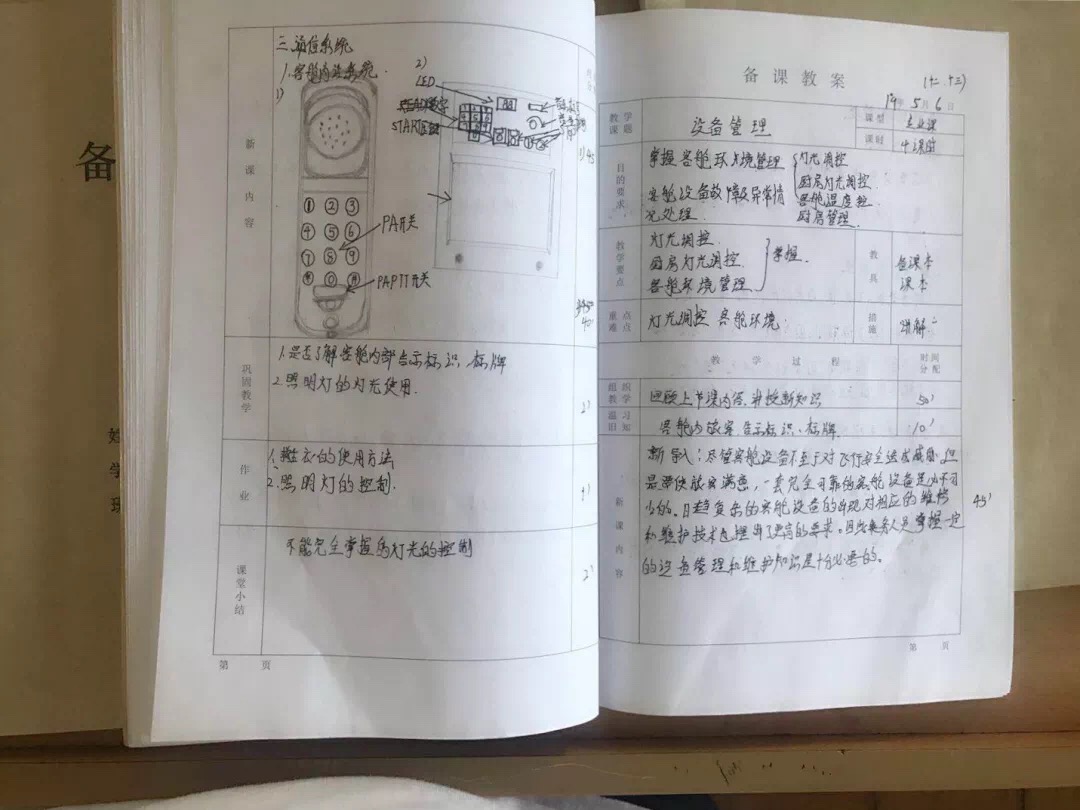 备
新课内容
三、通信系统
1.客舱内话系统.
1)
2)
LED
START
PA开关
PAPTT开关
① ② ③
④ ⑤ ⑥
⑦ ⑧ ⑨
0
40'
巩固教学
1.是否了解客舱内部告示标识、标牌
2.照明灯的灯光使用.
2'
作业
的使用方法
2.照明灯的控制.
课堂小结
不能完全掌握的灯光的控制
2'
第 页
备课教案
(十二、十三)
19年5月6日
教学课题
设备管理
课型
专业课
课时
4课时
目的要求
掌握客舱环境管理
灯光调控
厨房灯光调控.
客舱温度
厨房管理.
客舱设备故障及异常情
况处理.
教学要点
灯光调控.
厨房灯光调控.
客舱环境管理.
掌握.
教具
备课本
课本
重点难点
灯光调控 客舱环境.
措施
讲解
教学过程
时间分配
组织教学
回顾上节课内容、讲授新知识
50'
温习旧知
客舱内旅客告示标识、标牌.
10'
新课内容
新导入:尽管客舱设备不至于对飞行安全造成威胁,但
是要使旅客满意,一套完全可靠的客舱设备是必不可
少的。日趋复杂的客舱设备的出现对相应的维修
45'
和维护技术也提出了更高的要求。因此乘务人员掌握一定
的设备管理和维护知识是十分必要的。
第 页